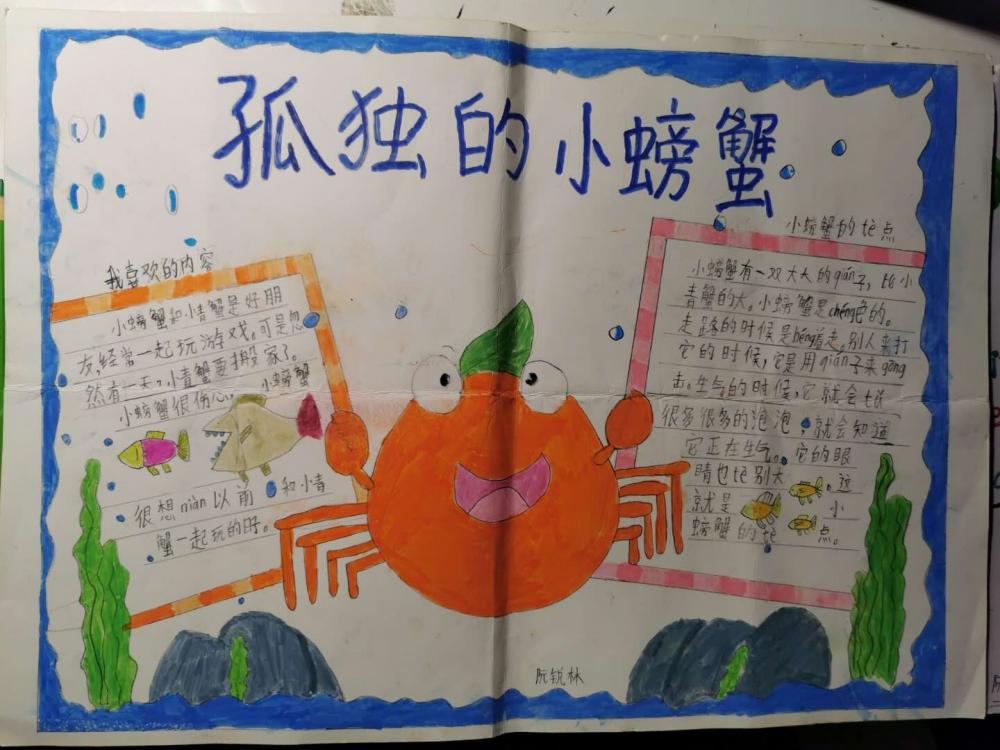 孤独的小螃蟹
我喜欢的内容
小螃蟹和小青蟹是好朋
友,经常一起玩游戏。可是忽
然有一天,小青蟹要搬家了。
小螃蟹很伤心,小螃蟹
很想niàn以前和小青
蟹一起玩的日子。
小螃蟹的tè点
小螃蟹有一双大大的qián子,比小
青蟹的大。小螃蟹是chéng色的。
走路的时候是héng着走。别人来打
它的时候,它是用qián子来gōng
击。生气的时候,它就会tǔ
很多很多的泡泡,就会知道
它正在生气。它的眼
睛也tè别大。这
就是小
螃蟹的tè点。
阮锐林